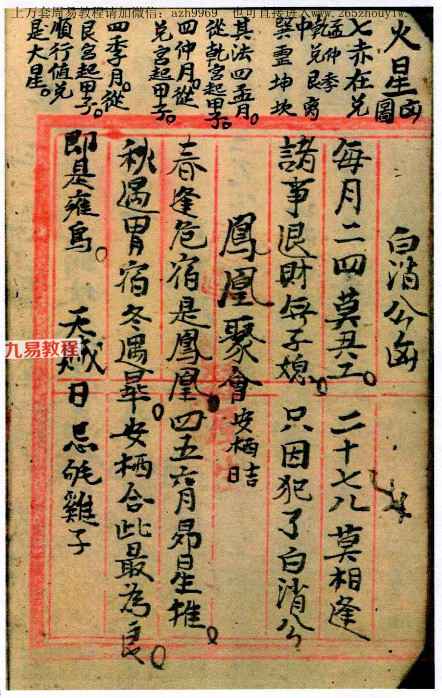 上万套周易教程请加微信：azh9969 也可直接进入www.265zhouyi.w
火星凶圖
七赤在兌
孟仲季
乾兌艮離
中
巽震坤坎
其法四孟月。
從乾宮起甲子。
四仲月。從
兌宮起甲子。
四季月。從
艮宮起甲子。
順行值兌
是火星。
白消公凶
每月二四莫丑工。二十七八莫相逢
諸事退財無子媳。只因犯了白消公
鳳凰聚會 安栖吉
春逢危宿是鳳凰。四五六月昴星推。
秋遇胃宿冬遇畢。安栖合此最為良。
即是雍烏。
天賊日忌 雞子
九易教程